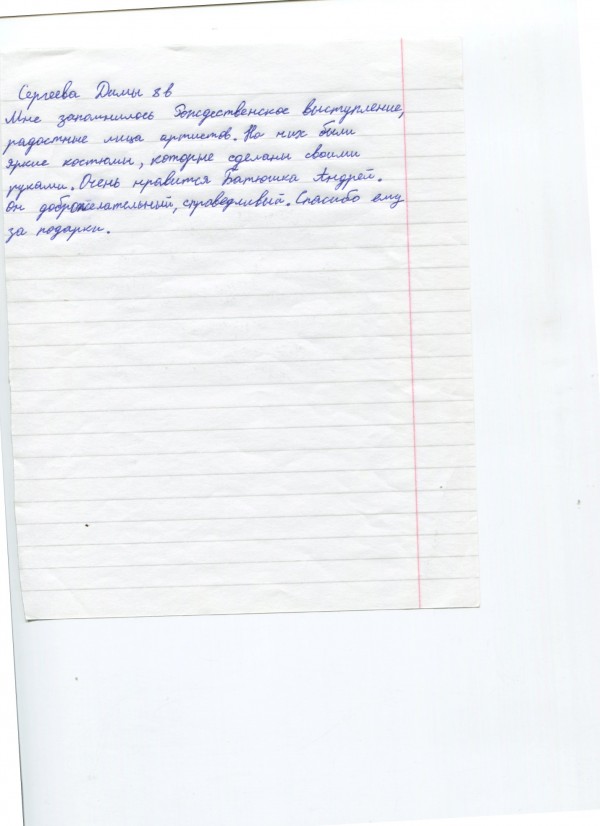 Сергеева Димы 8в
Мне запомнилось Рождественское выступление,
радостные лица артистов. На них были
яркие костюмы, которые сделаны своими
руками. Очень нравится Батюшка Андрей.
Он доброжелательный, справедливый. Спасибо ему
за подарки.